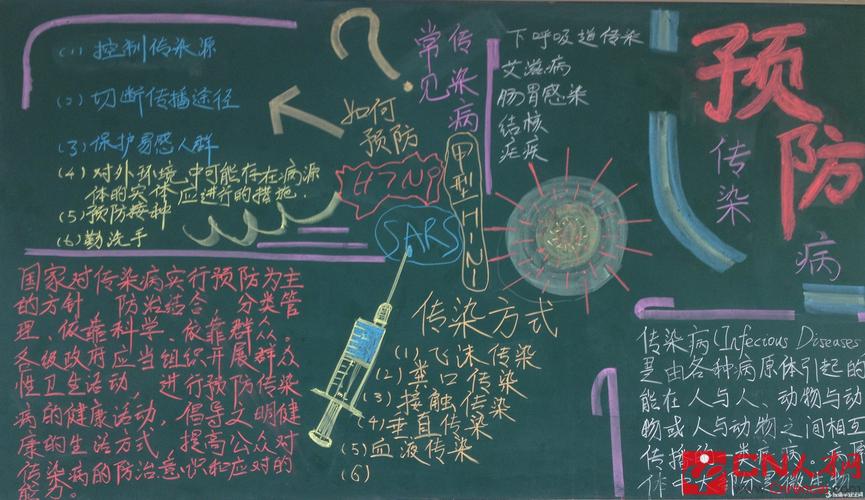 (1) 控制传染源
(2) 切断传播途径
(3) 保护易感人群
(4) 对外环境中可能存在病源
体的实体应进行的措施.
(5) 预防接种
(6) 勤洗手
?
如何
预防
常见
传染病
H7N9
SARS
甲型H1N1
下呼吸道传染
艾滋病
肠胃感染
结核
疟疾
预防
传染
病
国家对传染病实行预防为主
的方针 防治结合 分类管
理、依靠科学、依靠群众。
各级政府应当组织开展群众
性卫生活动, 进行预防传染
病的健康活动, 倡导文明健
康的生活方式, 提高公众对
传染病的防治意识和应对的
能力。
传染方式
(1) 飞沫传染
(2) 粪口传染
(3) 接触传染
(4) 垂直传染
(5) 血液传染
(6)
传染病(Infecious Diseases
是由各种病原体引起的
能在人与人、动物与动
物或人与动物之间相互
传播的一类疾病。病原
体中大部分是微生物
CN人网